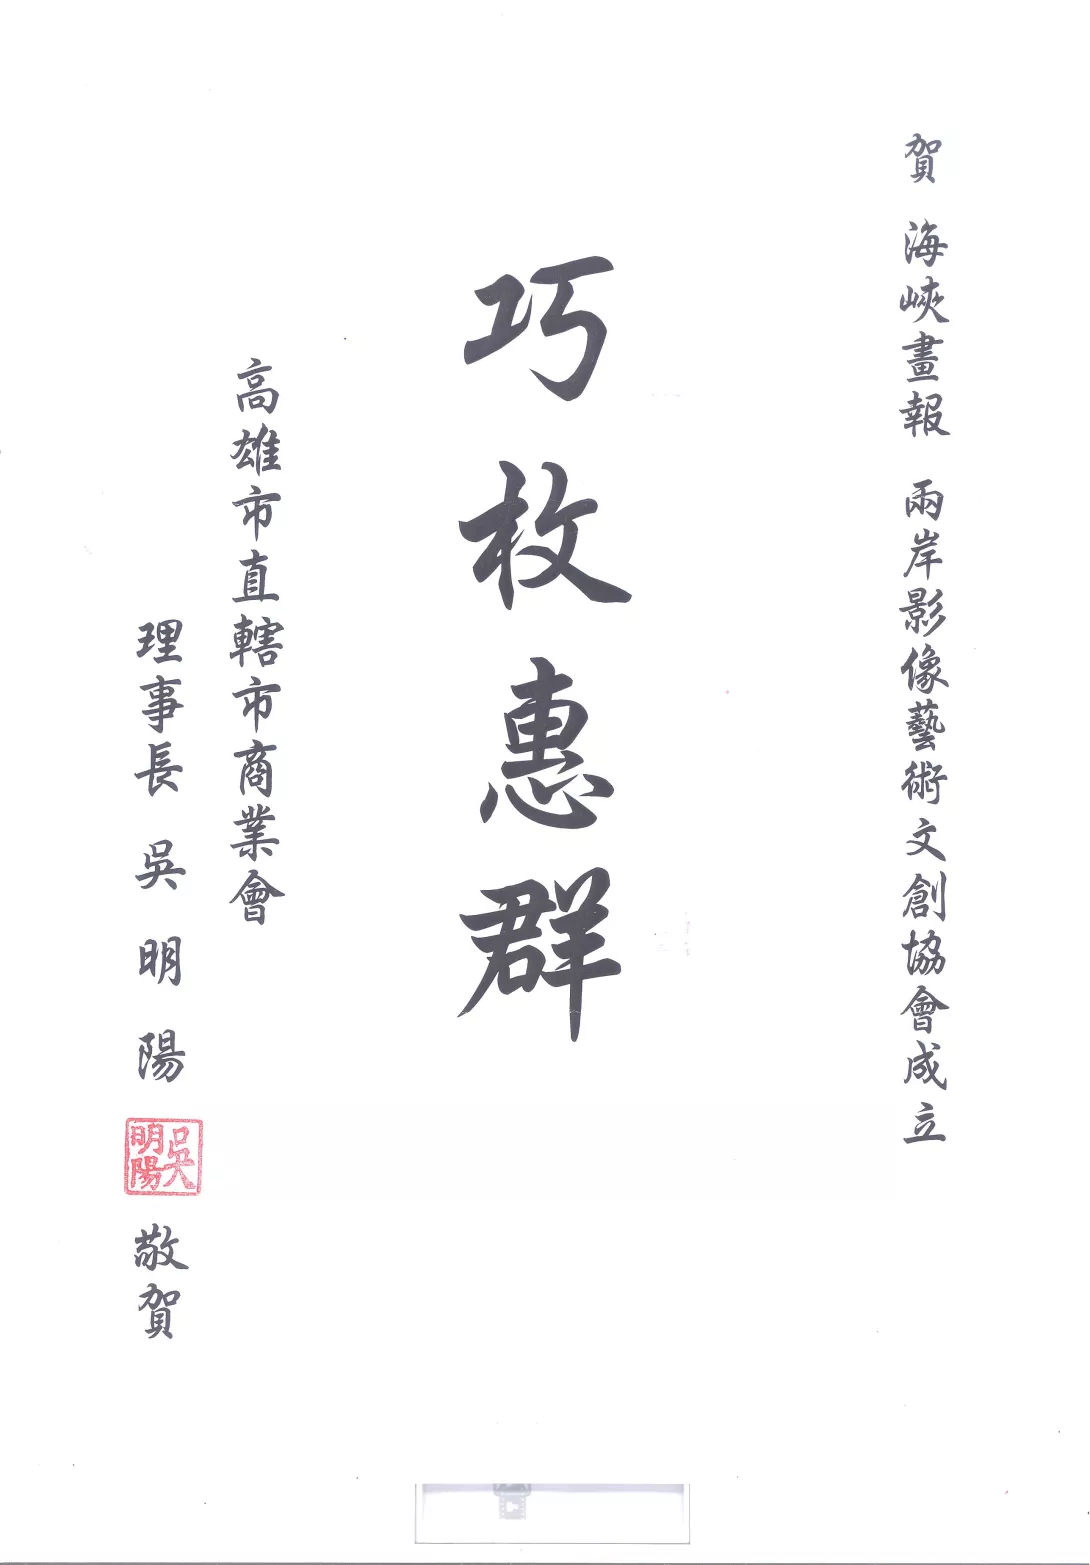 賀 海峽畫報 兩岸影像藝術文創協會成立
巧枚惠群
高雄市直轄市商業會
理事長 吳明陽
吳明陽
敬賀